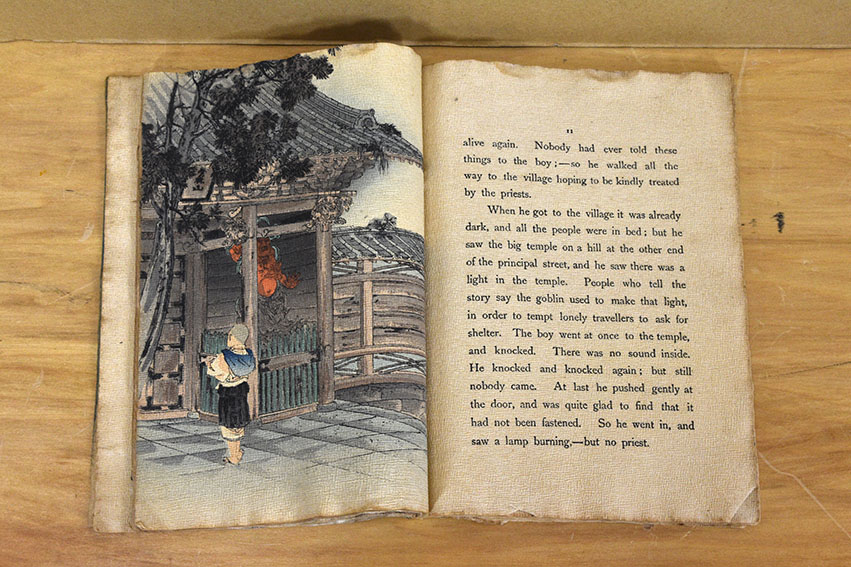 11
alive again. Nobody had ever told these
things to the boy;—so he walked all the
way to the village hoping to be kindly treated
by the priests.
When he got to the village it was already
dark, and all the people were in bed; but he
saw the big temple on a hill at the other end
of the principal street, and he saw there was a
light in the temple. People who tell the
story say the goblin used to make that light,
in order to tempt lonely travellers to ask for
shelter. The boy went at once to the temple,
and knocked. There was no sound inside.
He knocked and knocked again; but still
nobody came. At last he pushed gently at
the door, and was quite glad to find that it
had not been fastened. So he went in, and
saw a lamp burning,—but no priest.